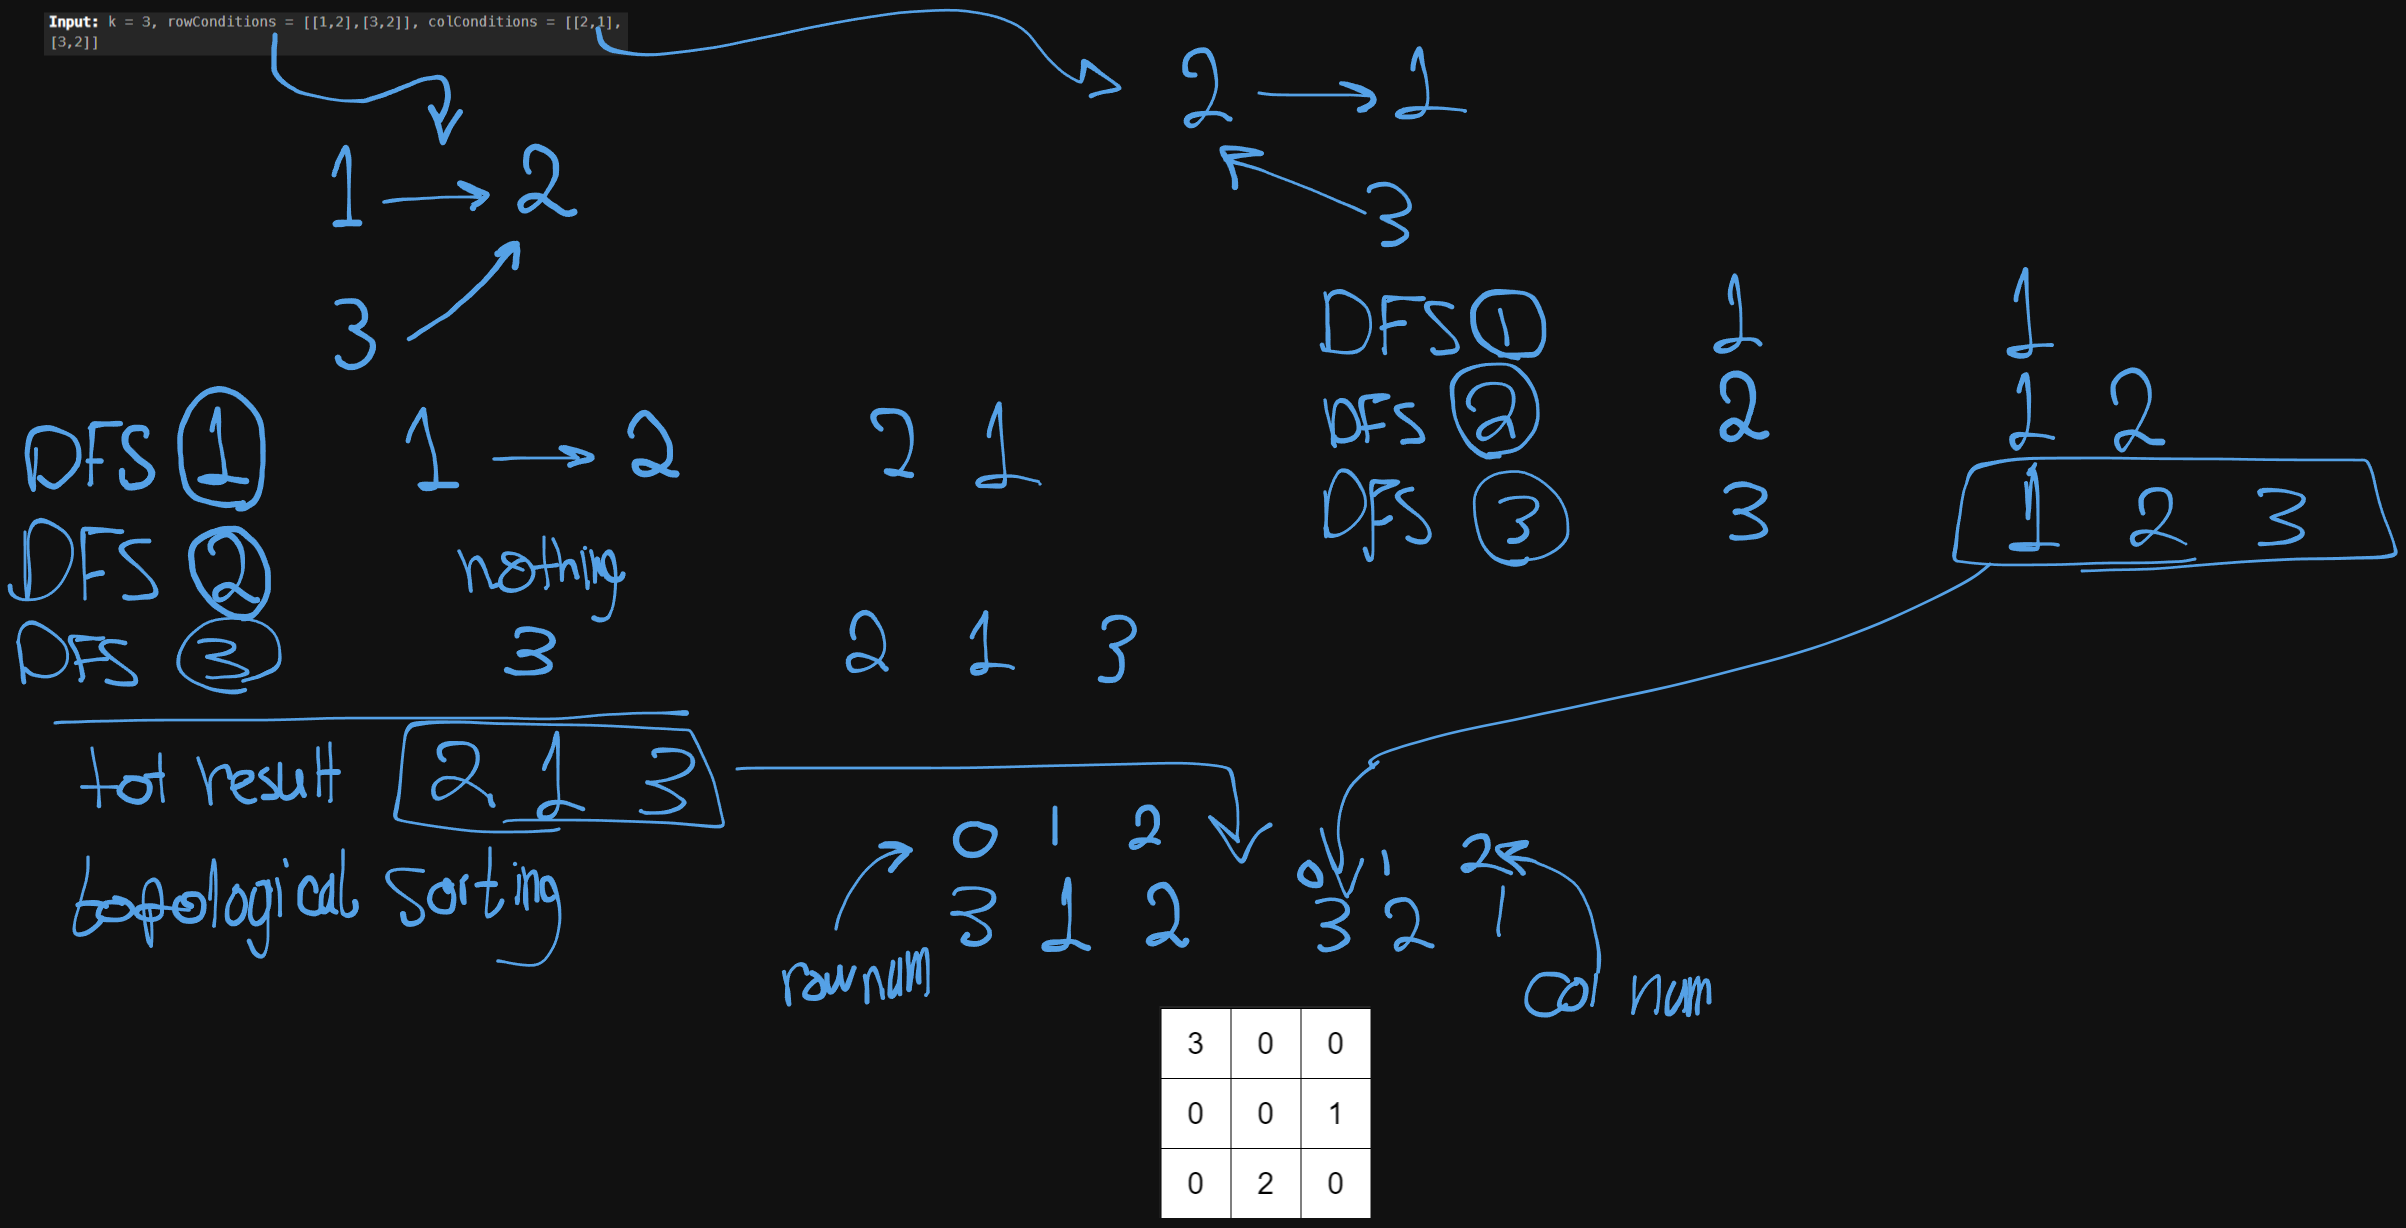 Input: k = 3, rowConditions = [[1,2],[3,2]], colConditions = [[2,1],
[3,2]]
2 1
3
1 2
3
DFS 1 1 2 2 1
DFS 2 nothing
DFS 3 3 2 1 3
tot result 2 1 3
topological sorting
DFS 1 1 1
DFS 2 2 1 2
DFS 3 3 1 2 3
0 1 2
3 1 2
row num
0 1 2
3 2 1
col num
3 0 0
0 0 1
0 2 0